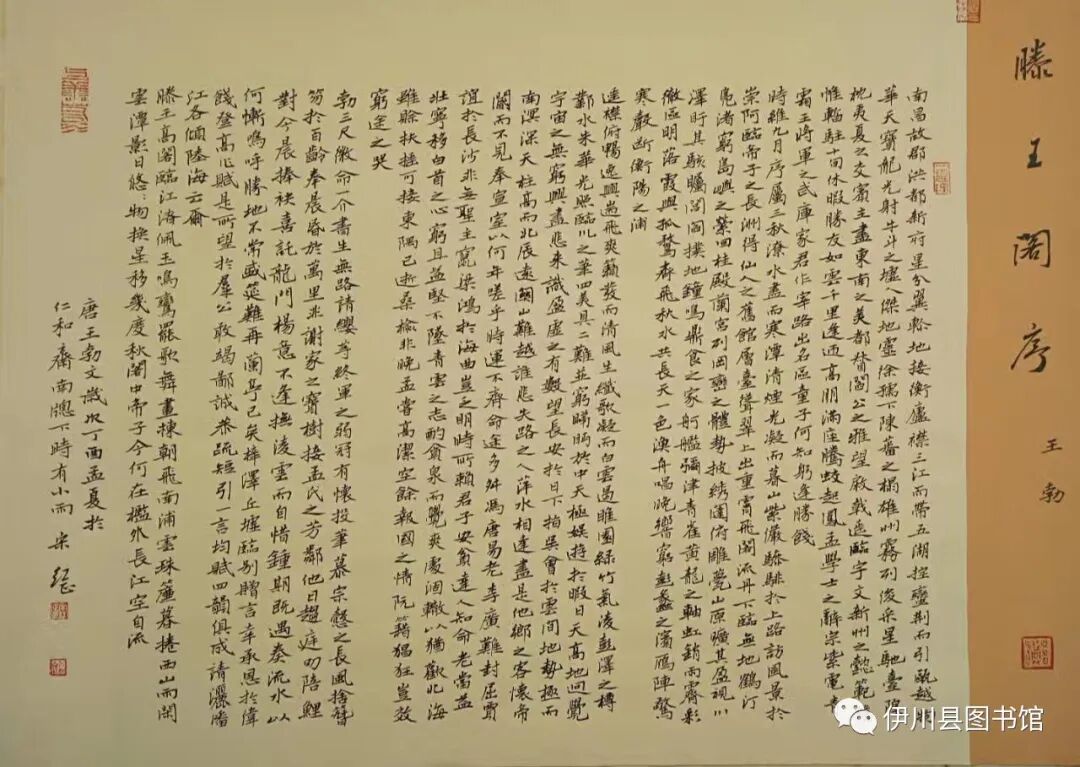 滕王閣序
王勃
南昌故郡洪都新府星分翼軫地接衡廬襟三江而帶五湖控蠻荊而引甌越物
華天寶龍光射牛斗之墟人傑地靈徐孺下陳蕃之榻雄州霧列俊采星馳臺隍
枕夷夏之交賓主盡東南之美都督閻公之雅望棨戟遙臨宇文新州之懿範襜
帷暫駐十旬休暇勝友如雲千里逢迎高朋滿座騰蛟起鳳孟學士之辭宗紫電青
霜王將軍之武庫家君作宰路出名區童子何知躬逢勝餞
時維九月序屬三秋潦水盡而寒潭清煙光凝而暮山紫儼驂騑於上路訪風景於
崇阿臨帝子之長洲得仙人之舊館層臺聳翠上出重霄飛閣流丹下臨無地鶴汀
鳧渚窮島嶼之縈回桂殿蘭宮列岡巒之體勢披繡闥俯雕甍山原曠其盈視川
澤盱其駭矚閭閻撲地鐘鳴鼎食之家舸艦彌津青雀黃龍之軸虹銷雨霽彩
徹區明落霞與孤鶩齊飛秋水共長天一色漁舟唱晚響窮彭蠡之濱雁陣驚
寒聲斷衡陽之浦
遙襟俯暢逸興遄飛爽籟發而清風生纖歌凝而白雲遏睢園綠竹氣凌彭澤之樽
鄴水朱華光照臨川之筆四美具二難並窮睇眄於中天極娛遊於暇日天高地迥覺
宇宙之無窮興盡悲來識盈虛之有數望長安於日下指吳會於雲間地勢極而
南溟深天柱高而北辰遠關山難越誰悲失路之人萍水相逢盡是他鄉之客懷帝
閽而不見奉宣室以何年嗟乎時運不齊命途多舛馮唐易老李廣難封屈賈
誼於長沙非無聖主竄梁鴻於海曲豈乏明時所賴君子安貧達人知命老當益
壯寧移白首之心窮且益堅不墜青雲之志酌貪泉而覺爽處涸轍以猶歡北海
雖賒扶搖可接東隅已逝桑榆非晚孟嘗高潔空餘報國之情阮籍猖狂豈效
窮途之哭
勃三尺微命一介書生無路請纓等終軍之弱冠有懷投筆慕宗慤之長風捨簪
笏於百齡奉晨昏於萬里非謝家之寶樹接孟氏之芳鄰他日趨庭叨陪鯉
對今晨捧袂喜託龍門楊意不逢撫凌雲而自惜鍾期既遇奏流水以
何慚嗚呼勝地不常盛筵難再蘭亭已矣梓澤丘墟臨別贈言幸承恩於偉
餞登高作賦是所望於群公敢竭鄙誠恭疏短引一言均賦四韻俱成請灑潘
江各傾陸海云爾
滕王高閣臨江渚佩玉鳴鸞罷歌舞畫棟朝飛南浦雲珠簾暮捲西山雨閒
雲潭影日悠:物換星移幾度秋閣中帝子今何在檻外長江空自流
唐王勃文歲次丁酉孟夏於
仁和齋南牕下時有小雨
伊川县图书馆